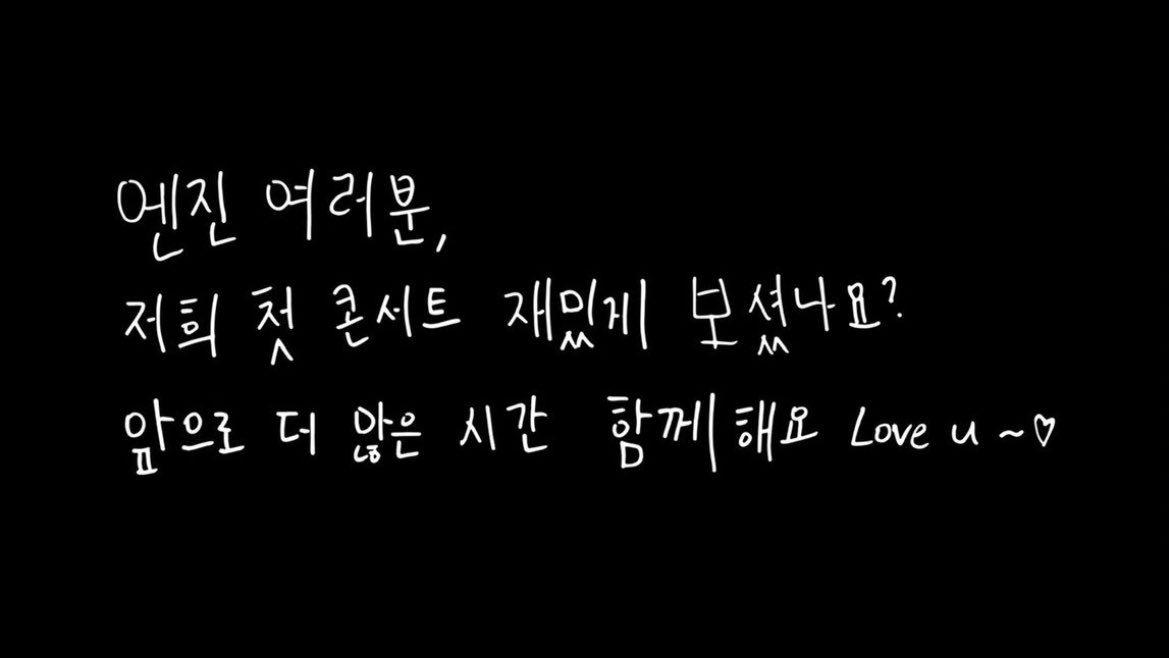 엔진 여러분,
저희 첫 콘서트 재밌게 보셨나요?
앞으로 더 많은 시간 함께해요 Love u ~♡